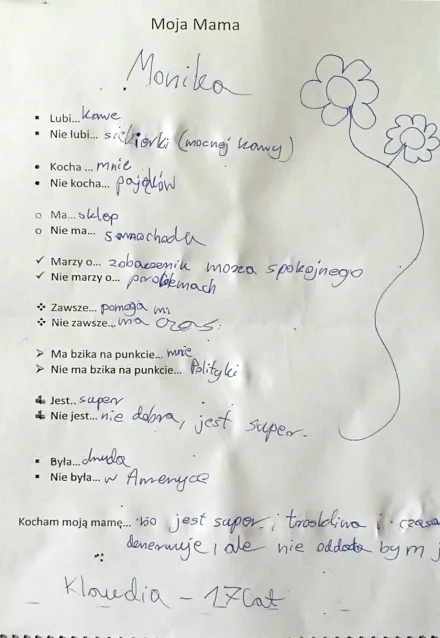 Moja Mama
Monika
Lubi... kawe
Nie lubi... siekierki (mocnej kawy)
Kocha ... mnie
Nie kocha... pająków
Ma... sklep
Nie ma... samochodu
Marzy o... zobaczenik moza spokojnego
Nie marzy o... problemach
Zawsze... pomaga mi
Nie zawsze... ma czas.
Ma bzika na punkcie... mnie
Nie ma bzika na punkcie... Polityki
Jest.. super
Nie jest... nie dobra, jest super.
Była... chuda
Nie była... w Ameryce
Kocham moją mamę... bo jest super i troskliwa i czasa
denerwuje, ale nie oddała bym j
Klaudia - 17lat